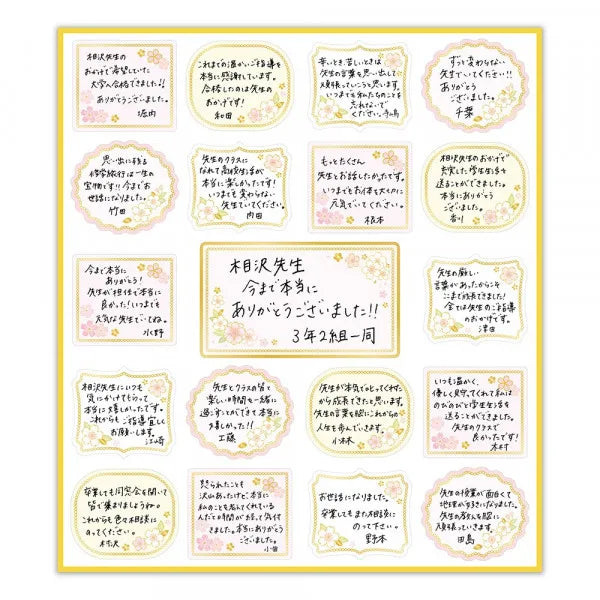 相沢先生の
おかげで希望していた
大学へ合格できました!!
ありがとうございました。
堀内
これまでの温かいご指導を
本当に感謝しています。
合格したのは先生の
おかげです!
和田
辛いとき、苦しいときは
先生の言葉を思い出して
頑張っていこうと思います。
いつまでも私たちのことを
忘れないで
ください。寺嶋
ずっと変わらない
先生でいてください!!
ありがとう
ございました。
千葉
思い出に残る
修学旅行は一生の
宝物です!!今まで
お世話になりました。
竹田
先生のクラスに
なれて高校生活が
本当に楽しかったです!
いつまでも変わらない
先生でいてください。
内田
もっとたくさん
先生とお話したかったです。
いつまでもお体を大切に
元気でいてください。
根本
相沢先生のおかげで
充実した学生生活を
送ることができました。
本当にありがとう
ございました。
香川
今まで本当に
ありがとう!
先生が担任で本当に
良かった!いつまでも
元気な先生でいてね。
水野
相沢先生
今まで本当に
ありがとうございました!!
3年2組一同
先生の厳しい
言葉があったからこそ
ここまで成長できました!
全ては先生のご指導
のおかげです。
津田
相沢先生にいつも
気にかけてもらって
本当に嬉しかったです。
これからもご指導宜しく
お願いします。
江崎
先生とクラスの皆で
楽しい時間を一緒に
過ごすことができて本当に
嬉しかった!!
工藤
先生が本気で叱ってくれた
から成長できたと思います。
先生の言葉を胸にこれからの
人生を歩んでいきます。
小林
いつも温かく、
優しく見守ってくれて私は
のびのびと学生生活を
送ることができました。
先生のクラスで
良かったです!
木村
卒業しても同窓会を開いて
皆で集まりましょうね。
これからも色々相談に
のってください。
村沢
怒られたことも
沢山あったけど、本当に
私のことを考えてくれている
んだと時間が経って気付
きました。本当にありがとう
ございました。
お世話になりました。
卒業してもまた相談に
のって下さい。
野本
先生の授業が面白くて
地理が好きになりました。
先生の教えを胸に
頑張っていきます。
田島